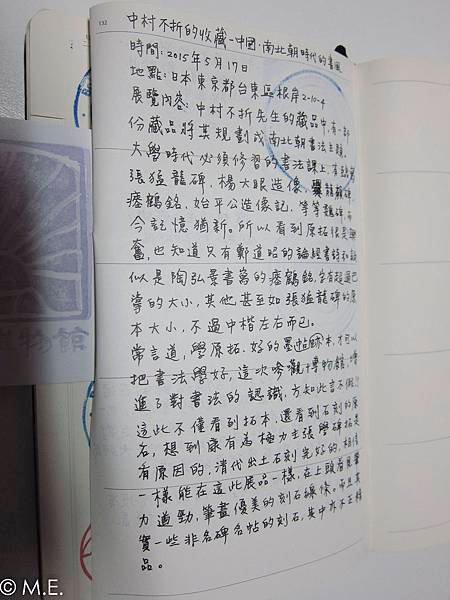 132
中村不折的收藏-中國·南北朝時代的書風
時間:2015年5月17日
地點:日本東京都台東區根岸2-10-4
展覽內容:中村不折先生的藏品中,有一部
份藏品將其規劃成南北朝書法主題。
大學時代必須修習的書法課上,
張猛龍碑、楊大眼造像、爨龍顏碑、
瘞鶴銘、始平公造像記,等等龍碑,而
今記憶猶新。所以看到原拓很是興
奮,也知道只有鄭道昭的論經書詩和
似是陶弘景書寫的瘞鶴銘,字有超過巴
掌的大小,其他甚至如張猛龍碑的原
本大小,不過中楷左右而已。
常言道,學原拓、好的墨帖本,才可以
把書法學好,這次參觀博物館,增
進了對書法的認識,方知此言不假!!
這此不僅看到拓本,還看到石刻的原
石,想到康有為極力主張學碑拓是
有原因的,清代出土石刻完好的,相信
一樣能在這此展品一樣,在上頭看見筆
力遒勁,筆畫優美的刻石線條。而且其
實一些非名碑名帖的刻石,其中亦不乏精
品。
物館
© M.E.